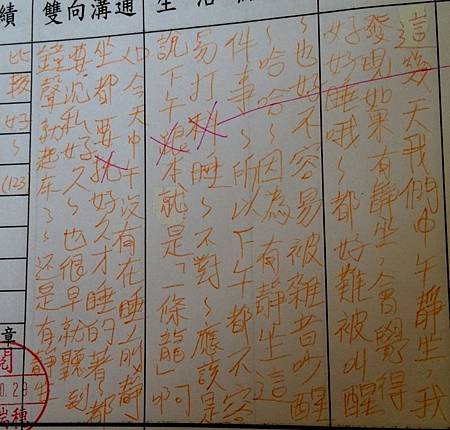 生活
雙向溝通
績
這幾天我們中午靜坐,我
發現如果有靜坐,會覺得
好好睡哦~都好難被叫醒
~也好不容易被雜音吵醒
~哈哈~因為有靜坐這
件事~所以下午都不容
易打睡~不對~應該是
說下午跟本就是「一條龍」啊
~今天中午沒有在睡前靜
坐都要好久才睡的著~都
要沈私好久~也很早就聽到
鐘聲就起床了~還是有靜坐
比較好~
(123
章
閱
0.29
瑞穗